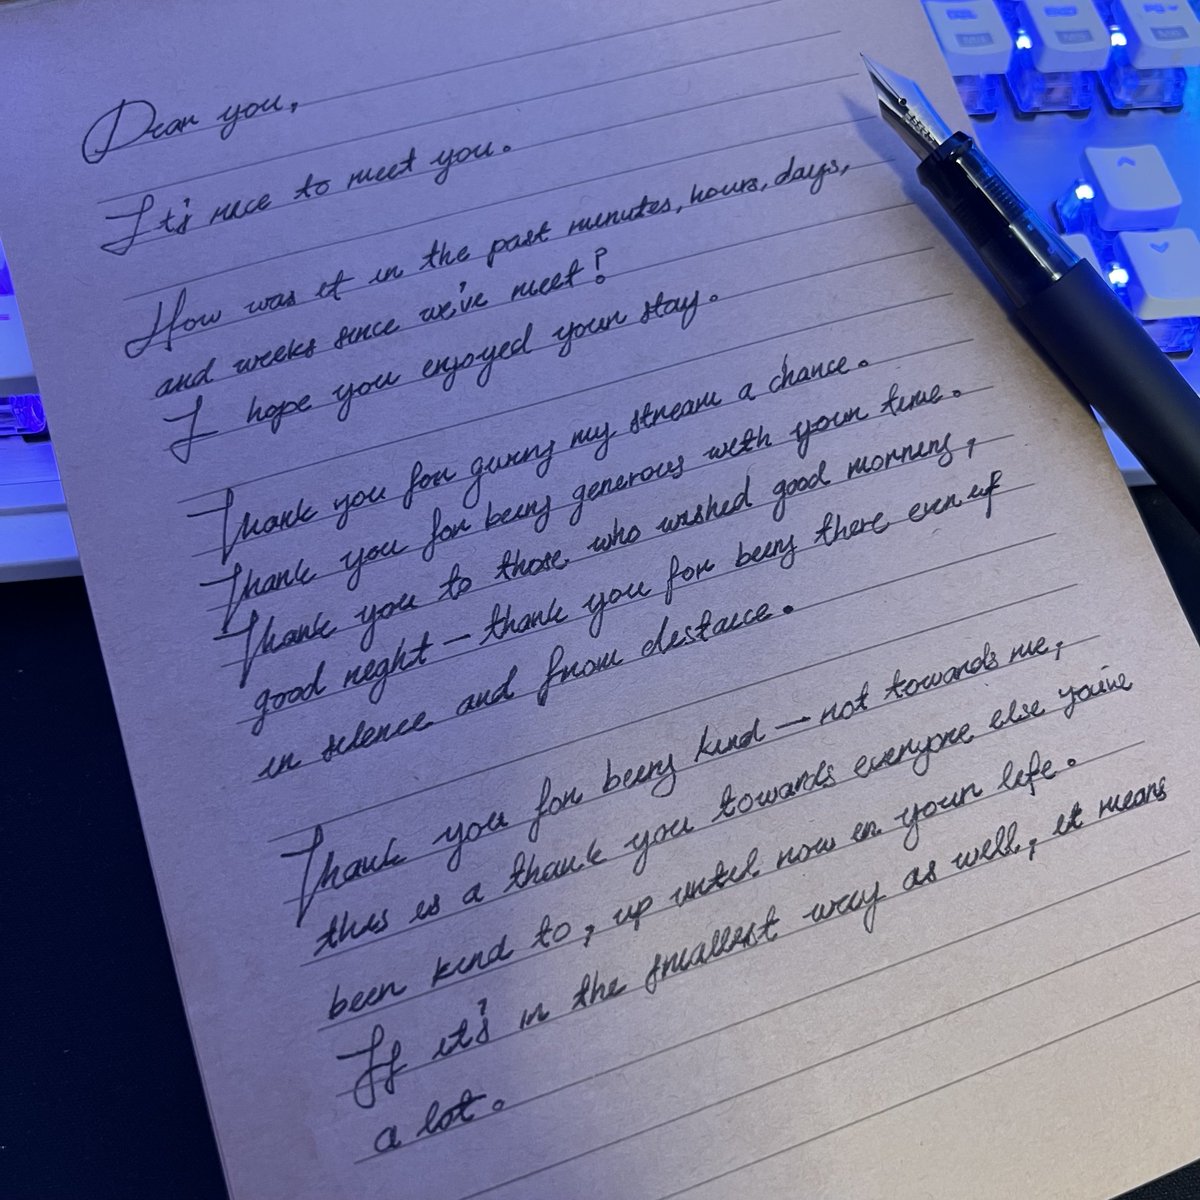 Dear you,
It's nice to meet you.
How was it in the past minutes, hours, days,
and weeks since we've meet?
I hope you enjoyed your stay.
Thank you for giving my stream a chance.
Thank you for being generous with your time.
Thank you to those who wished good morning,
good night — thank you for being there even if
in silence and from distance.
Thank you for being kind — not towards me,
this is a thank you towards everyone else you've
been kind to, up until now in your life.
If it's in the smallest way as well, it means
a lot.